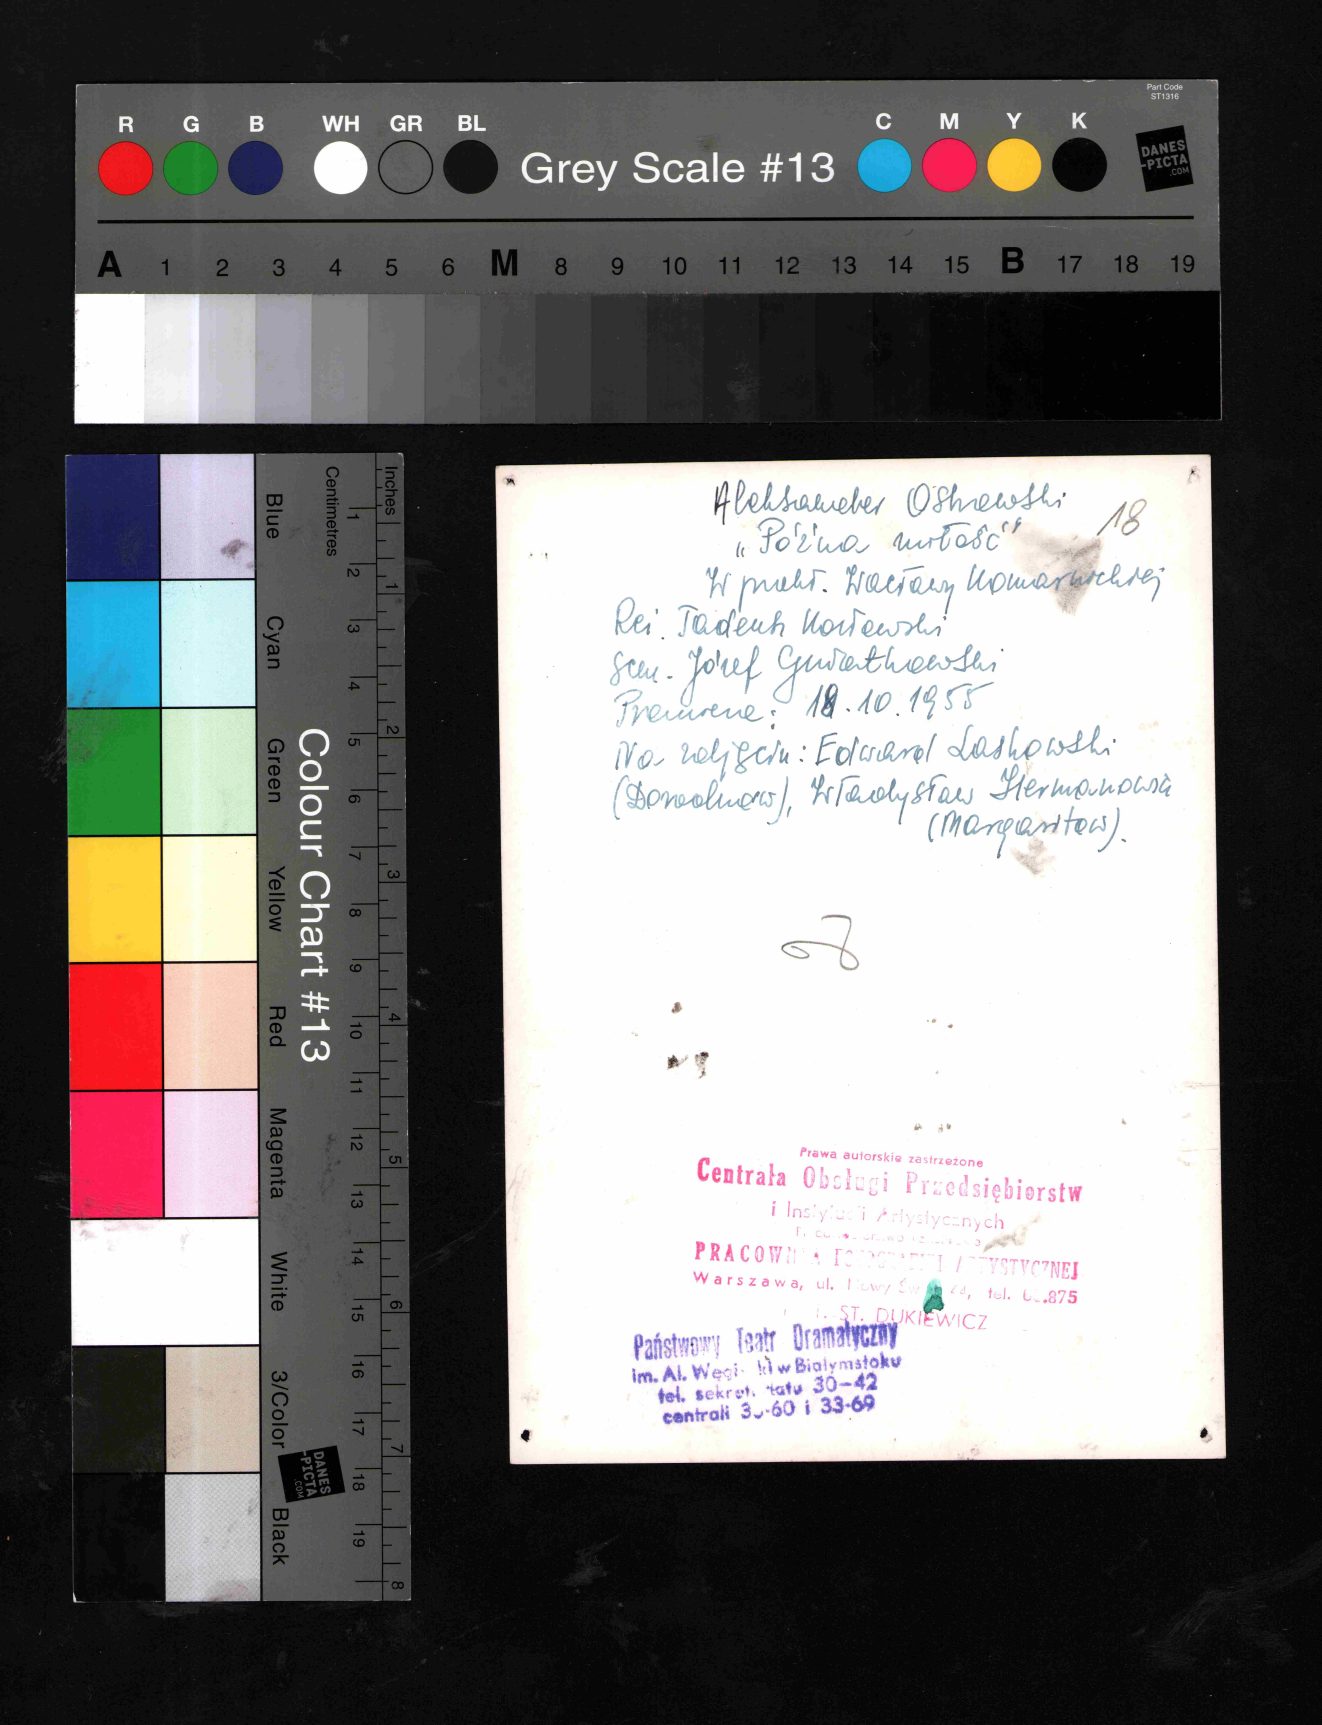 Part Code
ST1316
R G B WH GR BL Grey Scale #13 C M Y K
DANES
-PICTA
.COM
A 1 2 3 4 5 6 M 8 9 10 11 12 13 14 15 B 17 18 19
Colour Chart #13
Blue
Cyan
Green
Yellow
Red
Magenta
White
3/Color
Black
Centimetres
1 2 3 4 5 6 7 8 9 10 11 12 13 14 15 16 17 18 19
Inches
1 2 3 4 5 6 7 8
DANES
-PICTA
.COM
Aleksander Ostrowski
18
„Późna miłość"
W przekł. Wacławy Komarnickiej
Reż. Tadeusz Kozłowski
Scen. Józef
Premiera: 18.10.1955
Na zdjęciu: Edward Laskowski
(Dorodnow), Władysław
(Margaritow).
Prawa autorskie zastrzeżone
Centrala Obsługi Przedsiębiorstw
i Instytucji Artystycznych
PRACOWNIA FOTOGRAFII ARTYSTYCZNEJ
Warszawa, ul. Nowy tel.
ST. DUKIEWICZ
Państwowy Teatr Dramatyczny
im. Al. w Białymstoku
tel. sekretariatu 30-42
centrali i 33-69